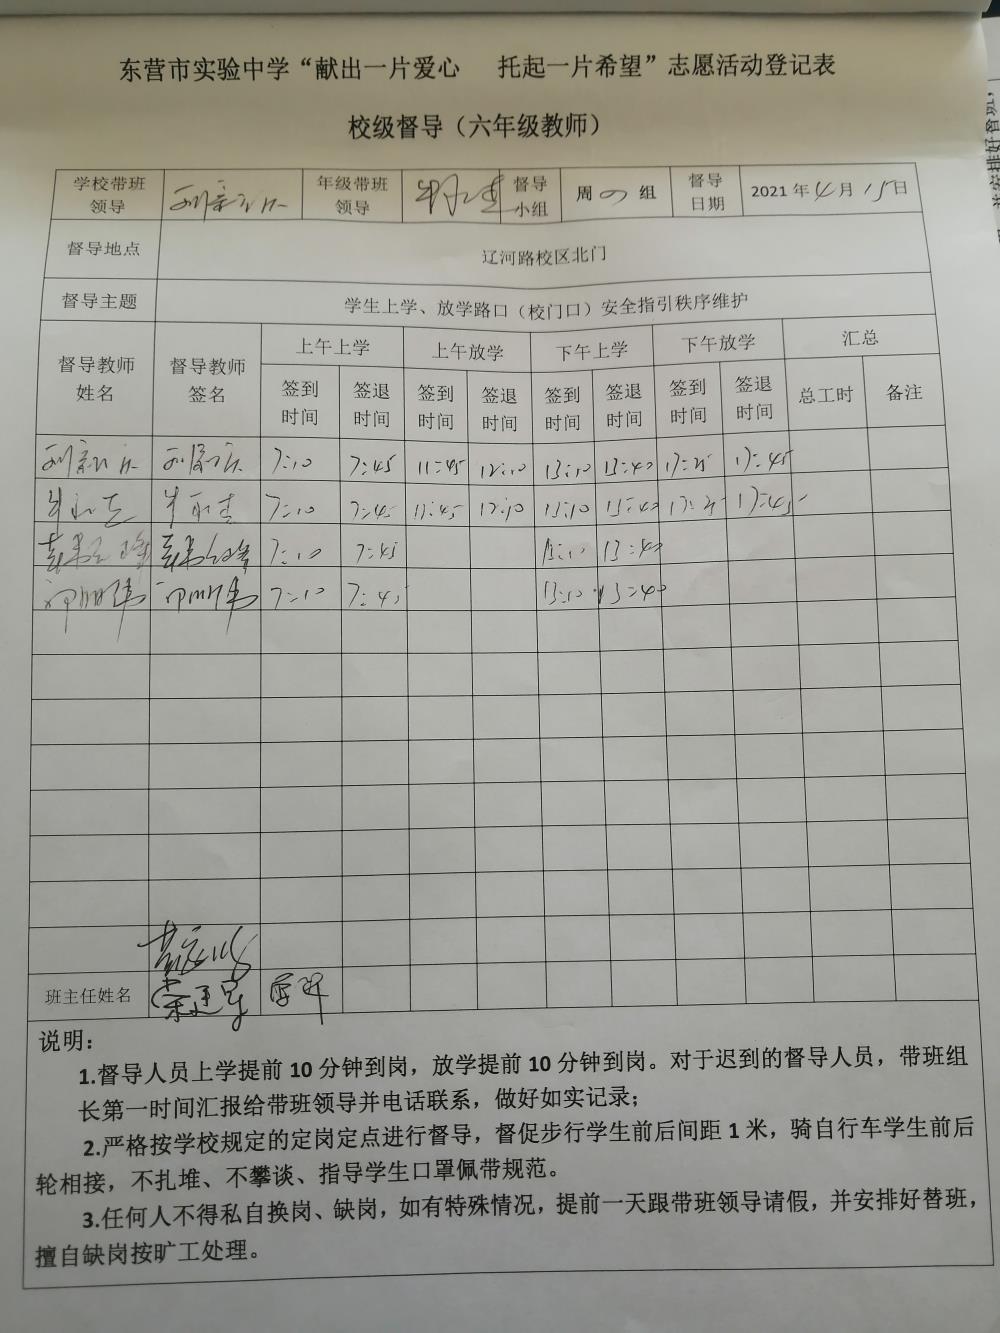 东营市实验中学“献出一片爱心 托起一片希望”志愿活动登记表
校级督导（六年级教师）
学校带班领导 年级带班领导 督导小组 周四组 督导日期 2021年4月15日
督导地点 辽河路校区北门
督导主题 学生上学、放学路口（校门口）安全指引秩序维护
督导教师姓名 督导教师签名 上午上学 上午放学 下午上学 下午放学 汇总
签到时间 签退时间 签到时间 签退时间 签到时间 签退时间 签到时间 签退时间 总工时 备注
7:10 7:45 11:45 12:10 13:10 13:40 17:25 17:45
7:10 7:45 11:45 12:10 13:10 13:40 17:25 17:45
7:10 7:45 13:10 13:40
7:10 7:45 13:10 13:40
班主任姓名
说明：
1.督导人员上学提前10分钟到岗，放学提前10分钟到岗。对于迟到的督导人员，带班组
长第一时间汇报给带班领导并电话联系，做好如实记录；
2.严格按学校规定的定岗定点进行督导，督促步行学生前后间距1米，骑自行车学生前后
轮相接，不扎堆、不攀谈、指导学生口罩佩带规范。
3.任何人不得私自换岗、缺岗，如有特殊情况，提前一天跟带班领导请假，并安排好替班，
擅自缺岗按旷工处理。